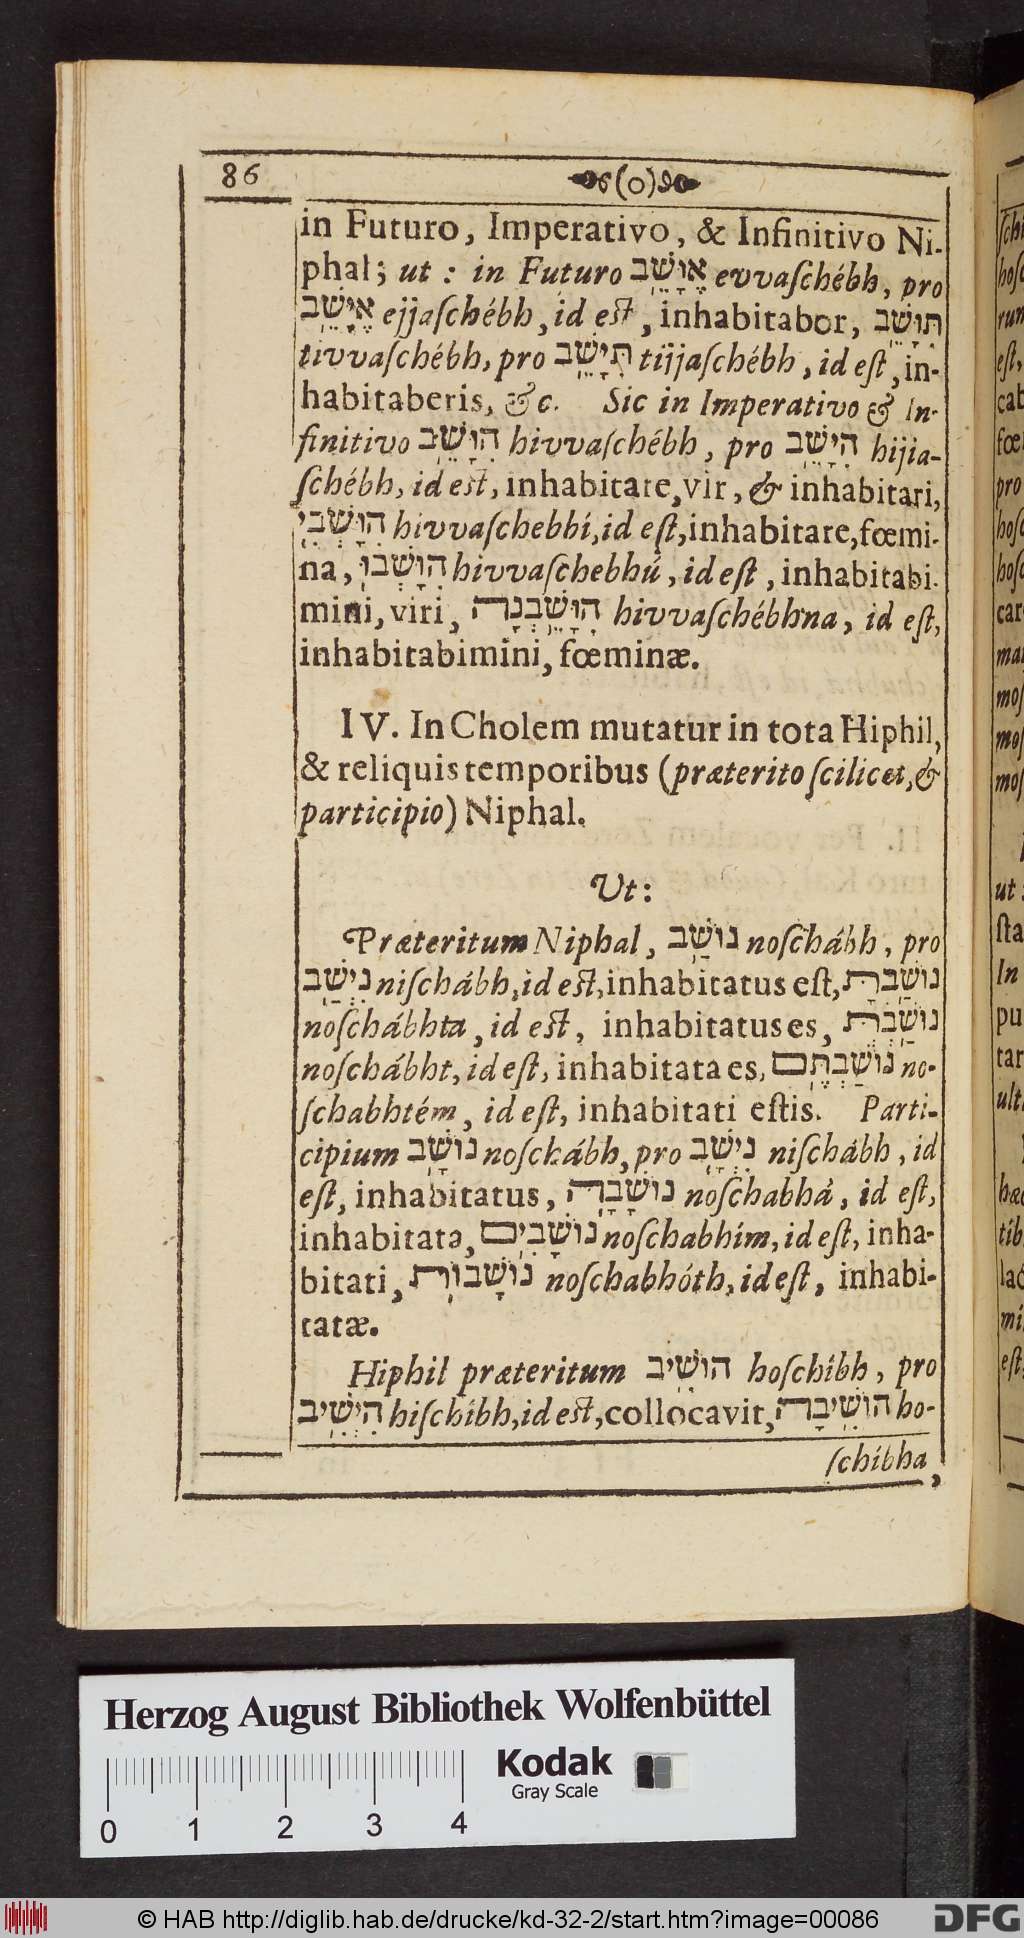 86 (o)
in Futuro, Imperativo, & Infinitivo Ni-
phal; ut : in Futuro אֶוָּשֵׁב evvaſchébh, pro
אֶיָּשֵׁב ejjaſchébh, id eſt, inhabitabor, תִּוָּשֵׁב
tivvaſchébh, pro תִּיָּשֵׁב tijjaſchébh, id eſt, in-
habitaberis, &c. Sic in Imperativo & In-
finitivo הִוָּשֵׁב hivvaſchébh, pro הִיָּשֵׁב hijia-
ſchébh, id eſt, inhabitare, vir, & inhabitari,
הִוָּשְׁבִי hivvaſchebbí, id eſt, inhabitare, fœmi-
na, הִוָּשְׁבוּ hivvaſchebhú, id eſt, inhabitabi-
mini, viri, הִוָּשֵׁבְנָה hivvaſchébhna, id eſt,
inhabitabimini, fœminæ.
IV. In Cholem mutatur in tota Hiphil,
& reliquis temporibus (præterito ſcilicet, &
participio) Niphal.
Ut:
Præteritum Niphal, נוֹשַׁב noſchábh, pro
נִיְשַׁב niſchábh, id eſt, inhabitatus eſt, נוֹשַׁבְתָּ
noſchábhta, id eſt, inhabitatus es, נוֹשַׁבְתְּ
noſchábht, id eſt, inhabitata es, נוֹשַׁבְתֶּם no-
ſchabhtém, id eſt, inhabitati eſtis. Parti-
cipium נוֹשָׁב noſchábh, pro נִיְשָׁב niſchábh, id
eſt, inhabitatus, נוֹשָׁבָה noſchabhá, id eſt,
inhabitata, נוֹשָׁבִים noſchabhím, id eſt, inha-
bitati, נוֹשָׁבוֹת noſchabhóth, id eſt, inhabi-
tatæ.
Hiphil præteritum הוֹשִׁיב hoſchíbh, pro
הִיְשִׁיב hiſchíbh, id eſt, collocavit, הוֹשִׁיבָה ho-
ſchíbha,
Herzog August Bibliothek Wolfenbüttel
Kodak
Gray Scale
0 1 2 3 4
© HAB http://diglib.hab.de/drucke/kd-32-2/start.htm?image=00086
DFG